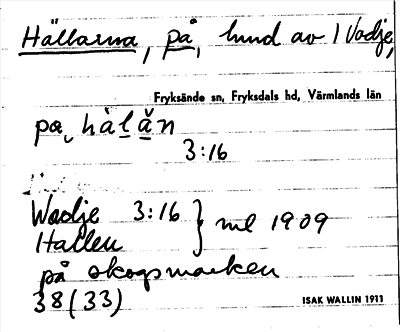 Hällarna, på, hund av 1 Vadje,
Fryksände sn, Fryksdals hd, Värmlands län
pa, hälån
3:16
Wadje 3:16 } ml 1909
Hallen
på skogsmarken
38(33)
ISAK WALLIN 1911